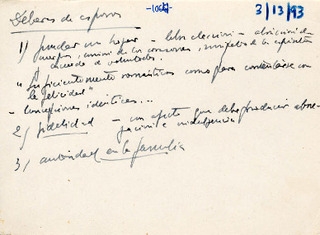 Deberes de esposos
3/13/93
1) fundar un hogar - libre elección - atracción de
cuerpos, unión de los corazones, simpatía de los espíritus
acuerdo de voluntades.
"suficientemente románticos como para contentarse con
la felicidad"
- concepciones idénticas...
2) fidelidad - un afecto que debe producir abne-
gación e indulgencia
3) autoridad en la familia